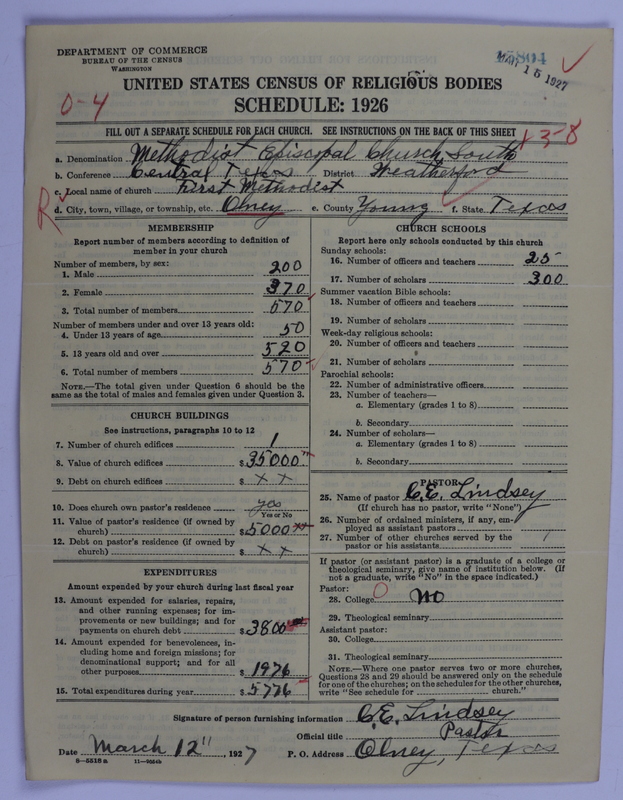 DEPARTMENT OF COMMERCE
BUREAU OF THE CENSUS
WASHINGTON
MAR 15 1927
UNITED STATES CENSUS OF RELIGIOUS BODIES
SCHEDULE: 1926
0-4
FILL OUT A SEPARATE SCHEDULE FOR EACH CHURCH. SEE INSTRUCTIONS ON THE BACK OF THIS SHEET
3-8
a. Denomination Methodist Episcopal Church, South
b. Conference Central Texas District Weatherford
c. Local name of church First Methodist
R
d. City, town, village, or township, etc. Olney e. County Young f. State Texas
MEMBERSHIP
Report number of members according to definition of
member in your church
Number of members, by sex:
1. Male 200
2. Female 370
3. Total number of members 570
Number of members under and over 13 years old:
4. Under 13 years of age 50
5. 13 years old and over 520
6. Total number of members 570
NOTE.—The total given under Question 6 should be the
same as the total of males and females given under Question 3.
CHURCH BUILDINGS
See instructions, paragraphs 10 to 12
7. Number of church edifices 1
8. Value of church edifices $ 35000
9. Debt on church edifices $ x x
10. Does church own pastor's residence yes
Yes or No
11. Value of pastor's residence (if owned by
church) $ 5000
12. Debt on pastor's residence (if owned by
church) $ x x
EXPENDITURES
Amount expended by your church during last fiscal year
13. Amount expended for salaries, repairs,
and other running expenses; for im-
provements or new buildings; and for
payments on church debt $ 3800
14. Amount expended for benevolences, in-
cluding home and foreign missions; for
denominational support; and for all
other purposes $ 1976
15. Total expenditures during year $ 5776
CHURCH SCHOOLS
Report here only schools conducted by this church
Sunday schools:
16. Number of officers and teachers 25
17. Number of scholars 300
Summer vacation Bible schools:
18. Number of officers and teachers
19. Number of scholars
Week-day religious schools:
20. Number of officers and teachers
21. Number of scholars
Parochial schools:
22. Number of administrative officers
23. Number of teachers—
a. Elementary (grades 1 to 8)
b. Secondary
24. Number of scholars—
a. Elementary (grades 1 to 8)
b. Secondary
PASTOR
25. Name of pastor C.E. Lindsey
(If church has no pastor, write "None")
26. Number of ordained ministers, if any, em-
ployed as assistant pastors
27. Number of other churches served by the
pastor or his assistants
If pastor (or assistant pastor) is a graduate of a college or
theological seminary, give name of institution below. (If
not a graduate, write "No" in the space indicated.)
Pastor:
28. College 0 no
29. Theological seminary
Assistant pastor:
30. College
31. Theological seminary
NOTE.—Where one pastor serves two or more churches,
Questions 28 and 29 should be answered only on the schedule
for one of the churches; on the schedules for the other churches,
write "See schedule for church."
Signature of person furnishing information C.E. Lindsey
Official title Pastor
Date March 12", 1927 P. O. Address Olney, Texas
8—5518 a